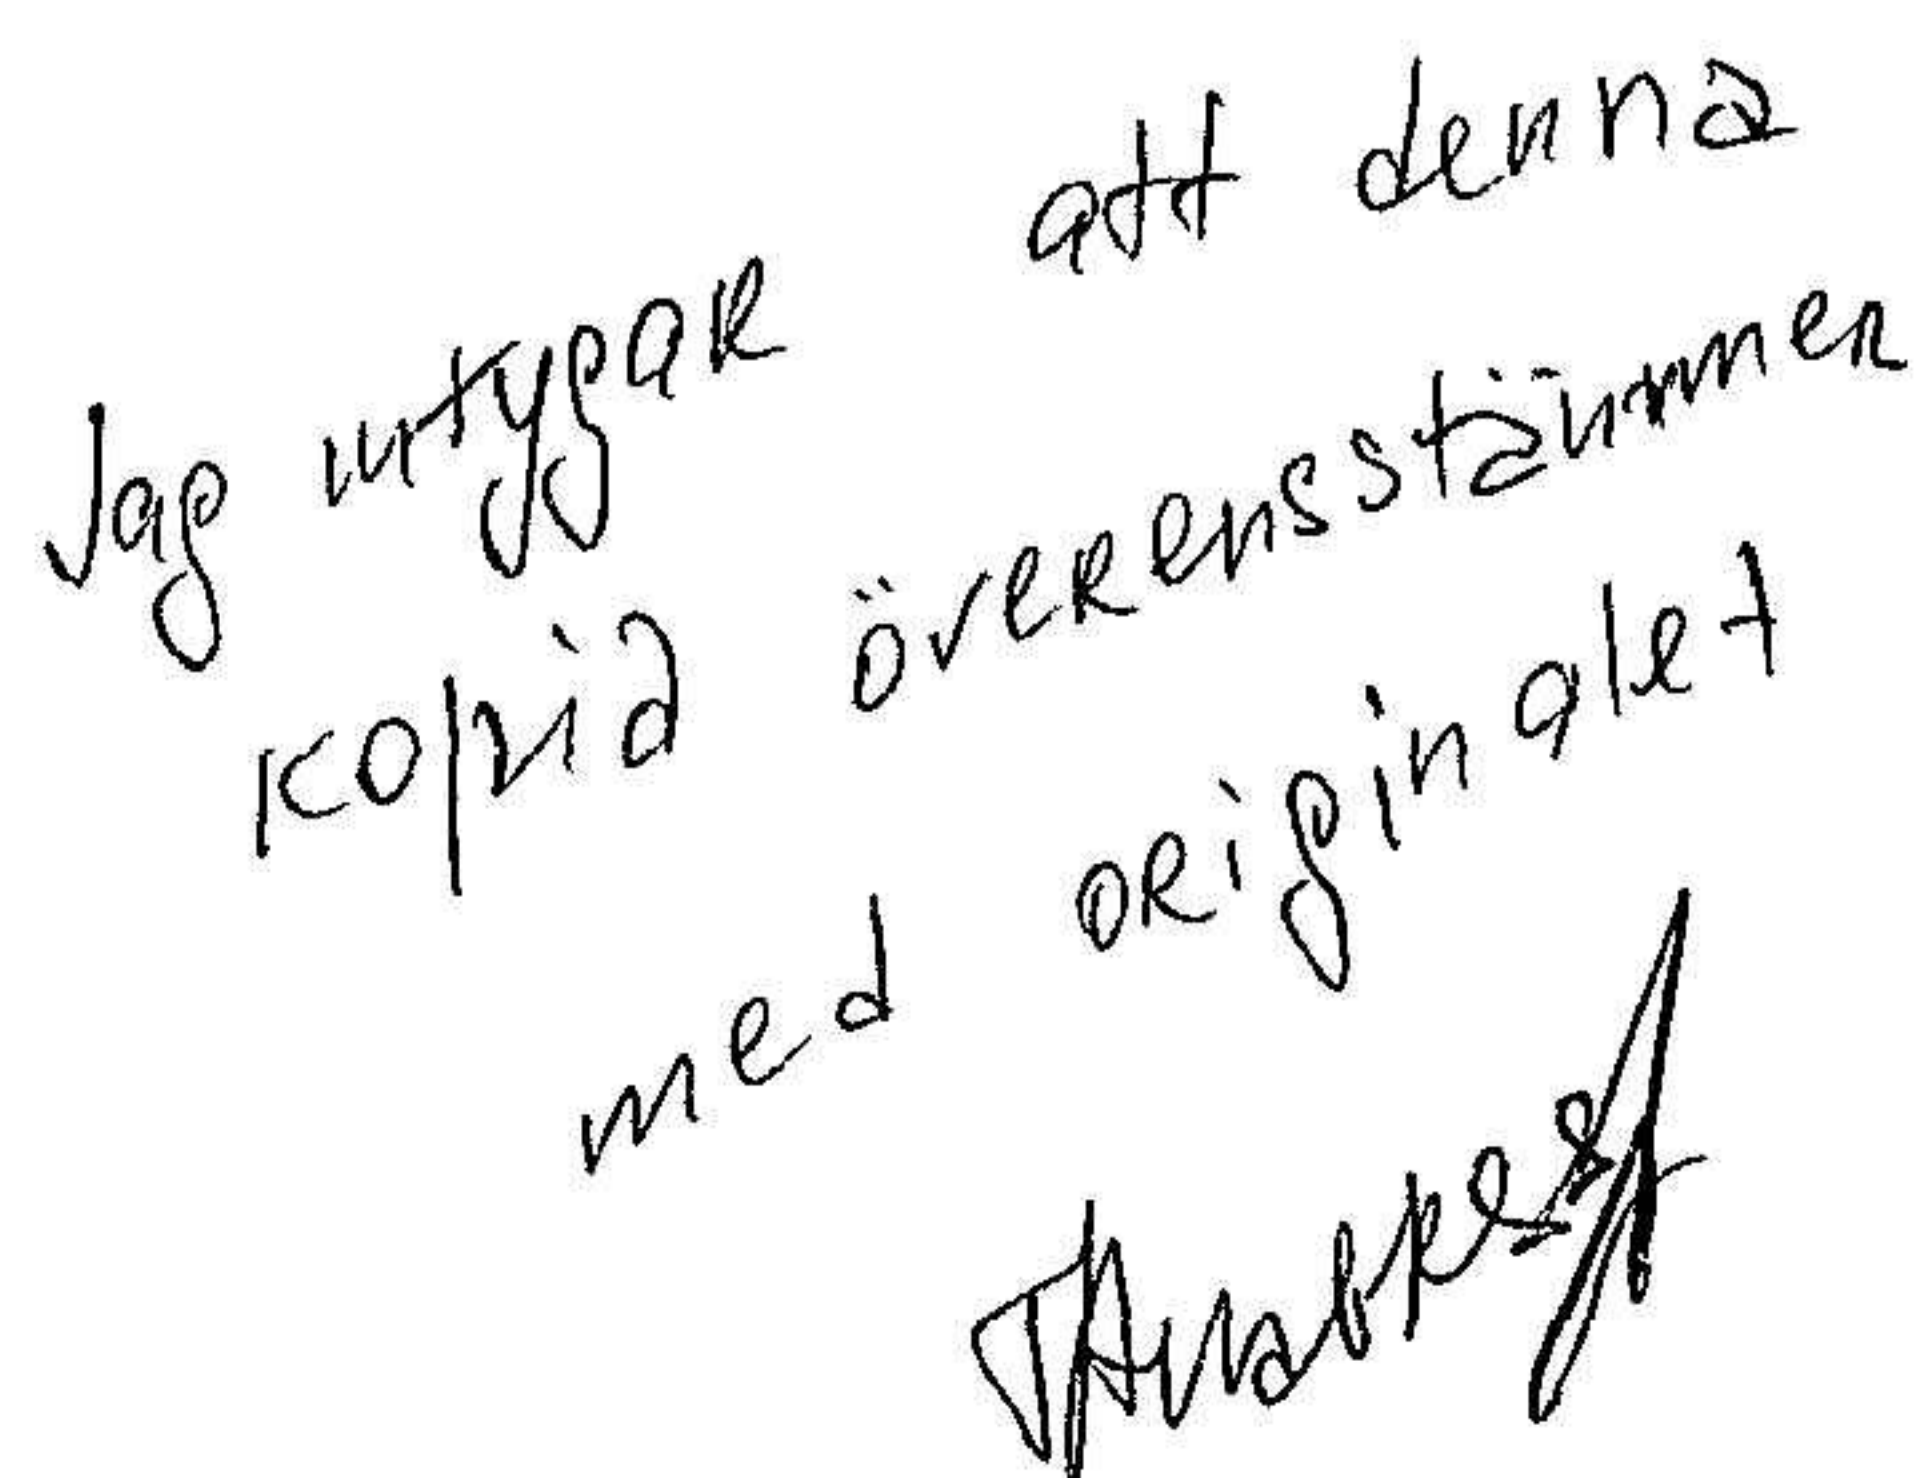 Jag intygar att denna
kopia överensstämmer
med originalet